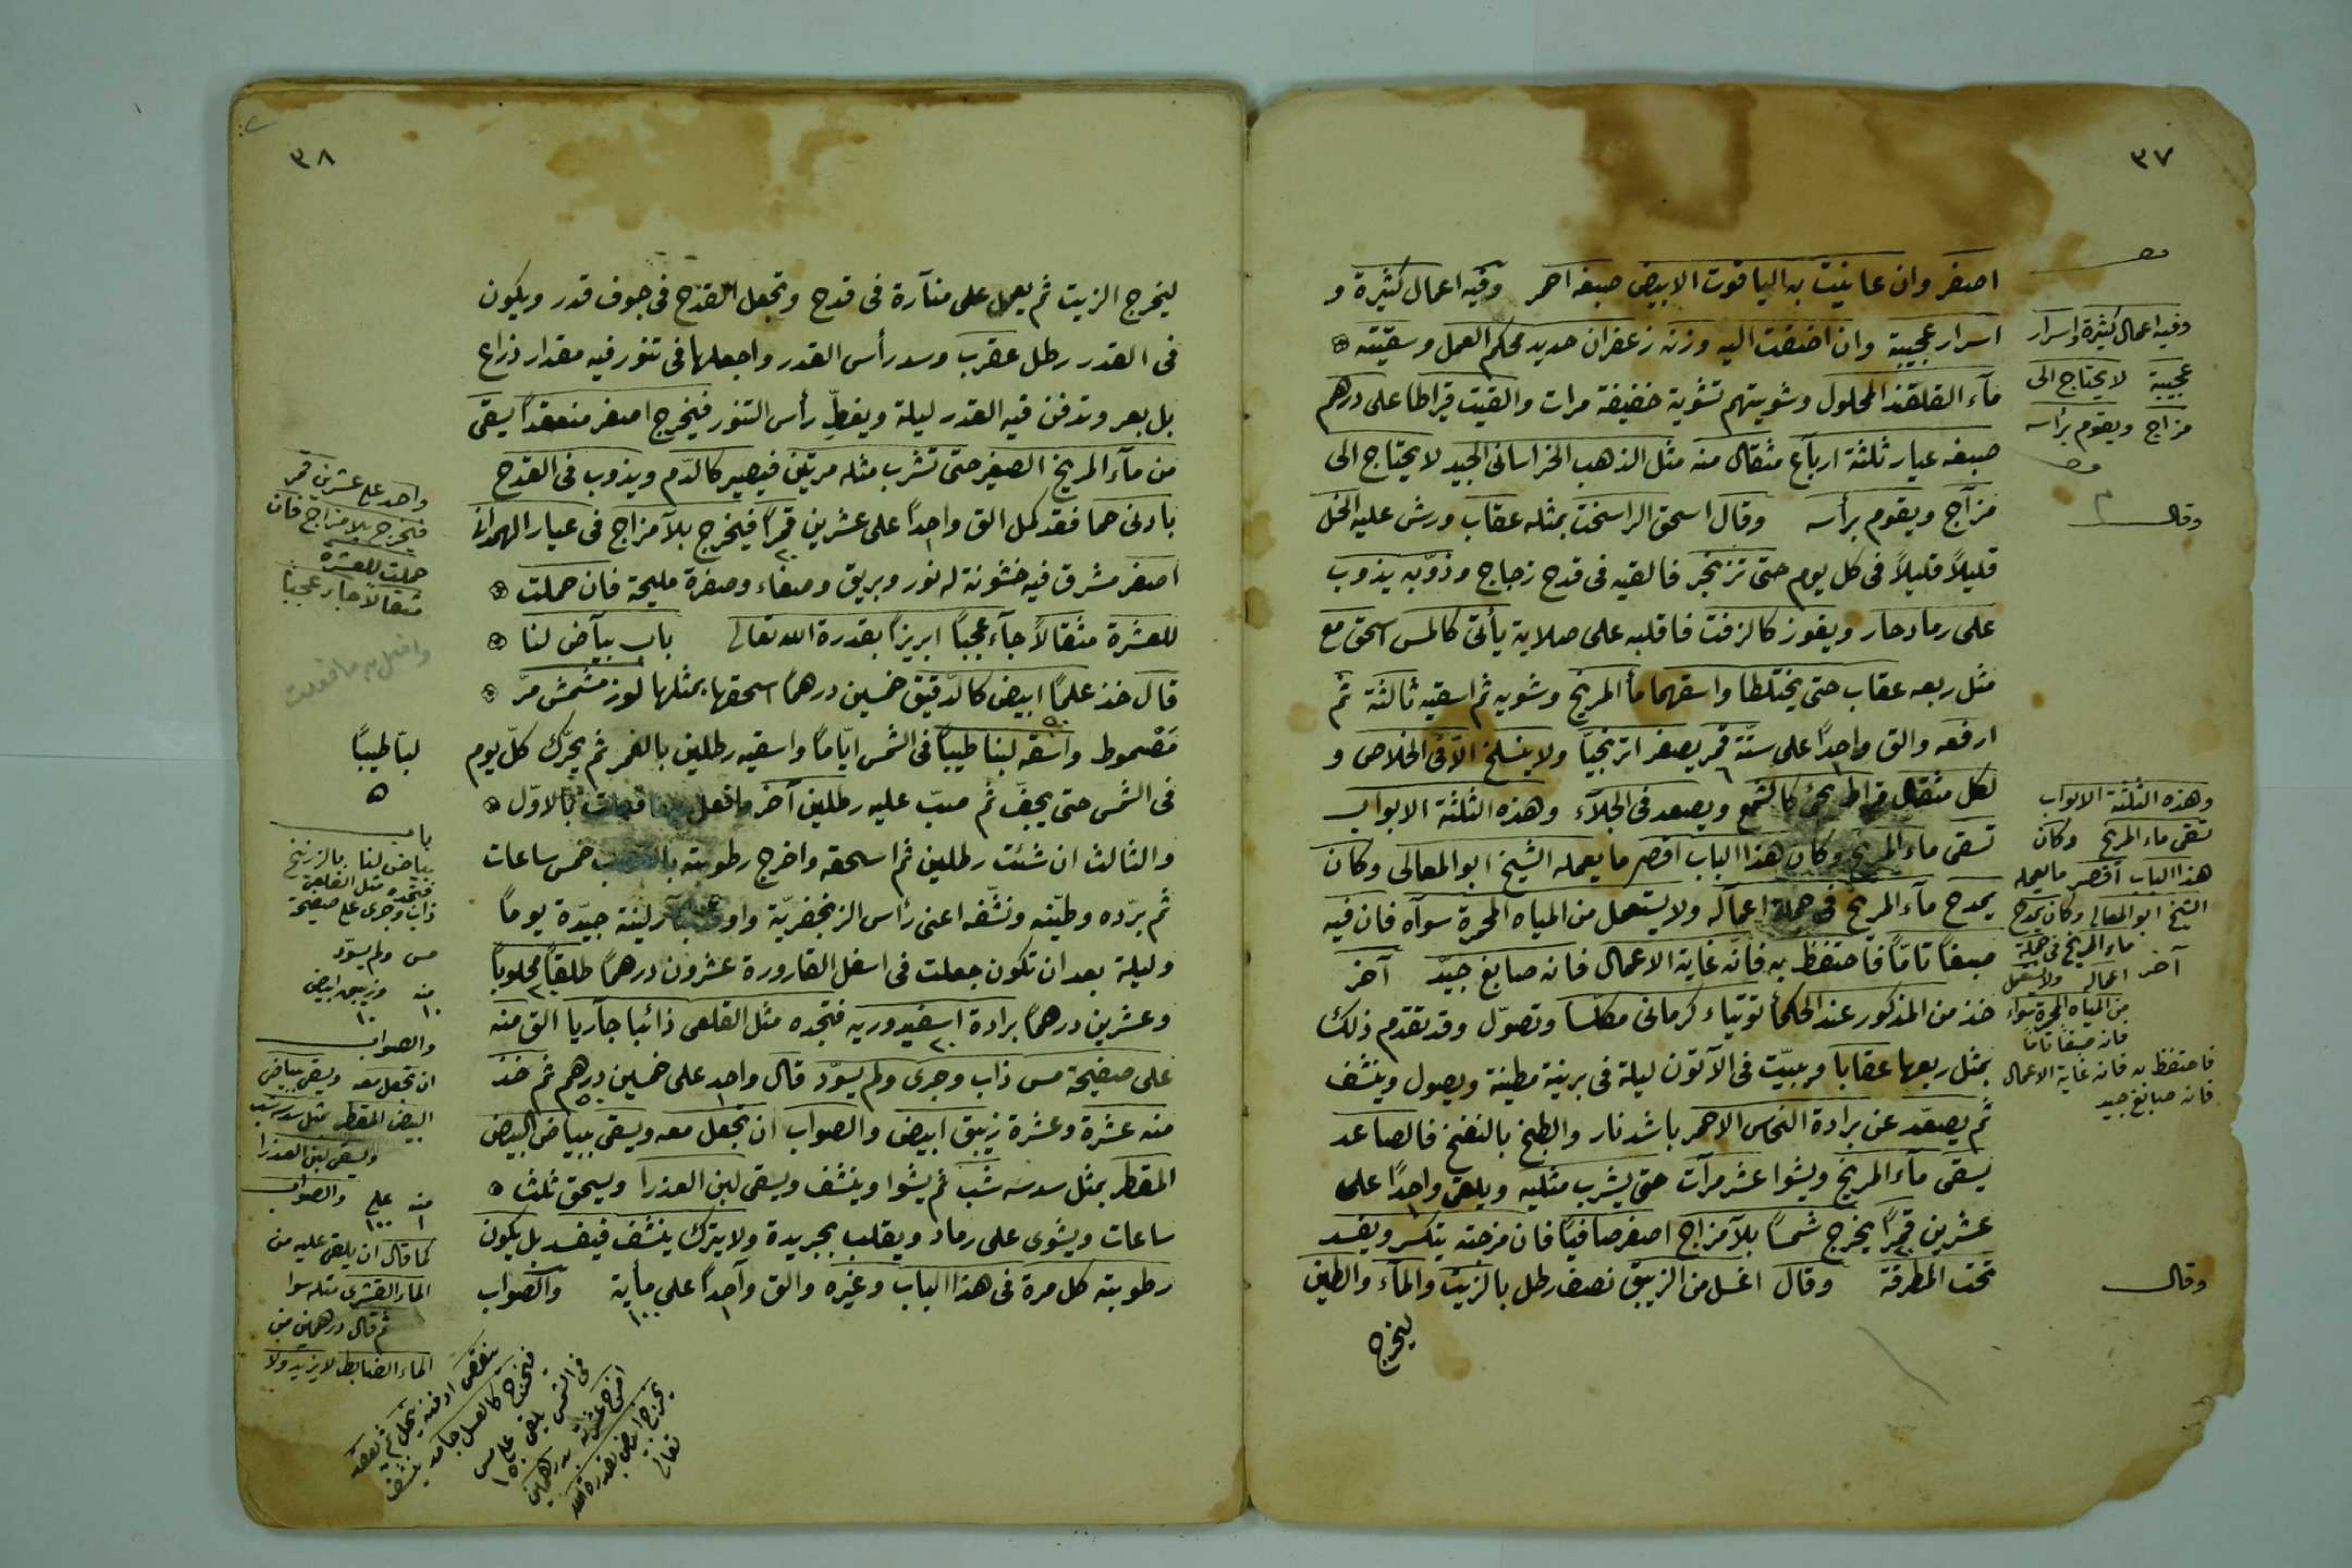 ٣٧
اصفر وان عاينت به الياقوت الابيض صبغه احمر وفيه اعمال كثيرة و
اسرار عجيبة وان اضفت اليه وزنه زعفران حديد محكم العمل وسقيته
مآء القلقند المحلول وشويتهم تشوية خفيفة مرات والقيت قيراطا على درهم
صبغه عيار ثلثة ارباع مثقال منه مثل الذهب الخراسانى الجيد لا يحتاج الى
مزاج ويقوم برأسه وقال اسحق الراسخت بمثله عقاب ورش عليه الخل
قليلاً قليلاً فى كل يوم حتى تزنجر فالقيه فى قدح زجاج وذوّبه يذوب
على رماد حار ويفوز كالزفت فاقلبه على صلاية يأتى كالمس اسحق مع
مثل ربعه عقاب حتى يختلطا واسقهما مأ المريخ وشويه ثم اسقيه ثالثة ثم
ارفعه والق واحداً على ستة قمر يصفر اترنجيّا ولا ينسلخ الّا فى الخلاص و
لكل مثقال قيراط يجئ كالشمع ويصعد فى الجلآء وهذه الثلثة الابواب
تسقى ماء المريخ وكان هذا الباب اقصر ما يعمله الشيخ ابو المعالى وكان
يمدح مآء المريخ فى جملة اعماله ولا يستعمل من المياه المحمرة سوآه فان فيه
صبغاً تامّاً فاحتفظ به فانّه غاية الاعمال فانه صابغ جيّد آخر
خذ من المذكور عند الحكمأ توتياء كرمانى مكلّسا وتصوّل وقد تقدم ذلك
بمثل ربعها عقابا ويبيّت فى الآتون ليلة فى برنية مطينة ويصول وينشف
ثم يصعّد عن برادة النحاس الاحمر باشد نار والطبخ بالنفخ فالصاعد
يسقى مآء المريخ ويشوا عشر مرآت حتى يشرب مثليه ويلقى واحداً على
عشرين قمراً يخرج شمساً بلآ مزاج اصفر صافياً فان مزجته يتكسر ويفسد
تحت المطرقة وقال اغسل من الزيبق نصف رطل بالزيت والمآء والطين
ليخرج
وفيه اعمال كثيرة واسرار
عجيبة لا يحتاج الى
مزاج ويقوم برأسه
وقال
وهذه الثلثة الابواب
تسقى ماء المريخ وكان
هذا الباب اقصر ما يعمله
الشيخ ابو المعالى وكان يمدح
ماء المريخ فى جملة
آخر اعماله ولا يستعمل
من المياه المحمرة سواء
فانه صبغاً تاماً
فاحتفظ به فانه غاية الاعمال
فانه صابغ جيد
وقال
٣٨
ليخرج الزيت ثم يعمل على منآرة فى قدح وتجعل القدح فى جوف قدر ويكون
فى القدر رطل عقرب وسد رأس القدر واجعلها فى تنور فيه مقدار ذراع
بل بعر وتدفن فيه القدر ليلة ويغطّ رأس التنور فيخرج اصفر منعقداً يسقى
من مآء المريخ الصغير حتى تشرب مثله مرتين فيصير كالدّم ويذوب فى القدح
بادنى حما فقد كمل الق واحداً على عشرين قمراً فيخرج بلآ مزاج فى عيار
اصفر مشرق فيه خشونة له نور وبريق وصفاء وصفرة مليحة فان حملت
للعشرة مثقالاً جآء عجبًا ابريزًا بقدرة الله تعالى باب بيآض لنا
قال خذ علمًا ابيض كالدقيق خمسين درهمًا اسحقها بمثلها لوز مشمش مرّ
مَصْموط واسقه لبنا طيبًا فى الشمس ايّامًا واسقيه رطلين بالغمر ثم يحرّك كلّ يوم
فى الشمس حتى يجفّ ثم صبّ عليه رطلين آخر وافعل بالاوّل
والثالث ان شئت رطلين ثم اسحقه واخرج رطوبته خمس ساعات
ثم برّده وطيّنه ونشّفه اعنى رأس الزنجفريّة لينة جيّدة يوماً
وليلة بعد ان تكون جعلت فى اسفل القارورة عشرون درهمًا طلقاً محلوباً
وعشرين درهمًا برادة اسفيدوريه فتجده مثل القلعى ذائبا جآريا الق منه
على صفيحة مس ذاب وجرى ولم يسوّد قال واحد على خمسين درهم ثم خذ
منه عشرة وعشرة زيبق ابيض والصواب ان تجعل معه ويسقى ببياض البيض
المقطر بمثل سدسه شب ثم يشوا وينشف ويسقى لبن العذرا ويسحق ثلث
ساعات ويشوى على رماد ويقلب بجريدة ولا يترك ينشف فيفسد بل يكون
رطوبته كل مرة فى هذا الباب وغيره والق وآحداً على مأية والصواب
١ ١٠٠
واحد على عشرين قمر
فيخرج بلا مزاج فان
حملت للعشرة
مثقالاً جاء عجبًا
لبنا طيبًا
باب
بياض لنا بالزرنيخ
فتجده مثل القلعى
ذاب وجرى على صفيحة
مس ولم يسوّد
منه وزيبق ابيض
١٠ ١٠
والصواب
ان تجعل معه ويسقى بياض
البيض المقطر بمثل سدسه شب
ويسقى لبن العذرا
منه على والصواب
١ ١٠٠
كما قال ان يلقى عليه من
الماء القشرى مثله سوا
ثم قال درهمين من
الماء الضابط لا يزيد ولا
ينقص ادفنه ينحل ثم تعقده
فيخرج كالعسل جامد ينشف
فى الشمس يلقى على مس
يخرج ابيض بقدرة الله
تعالى